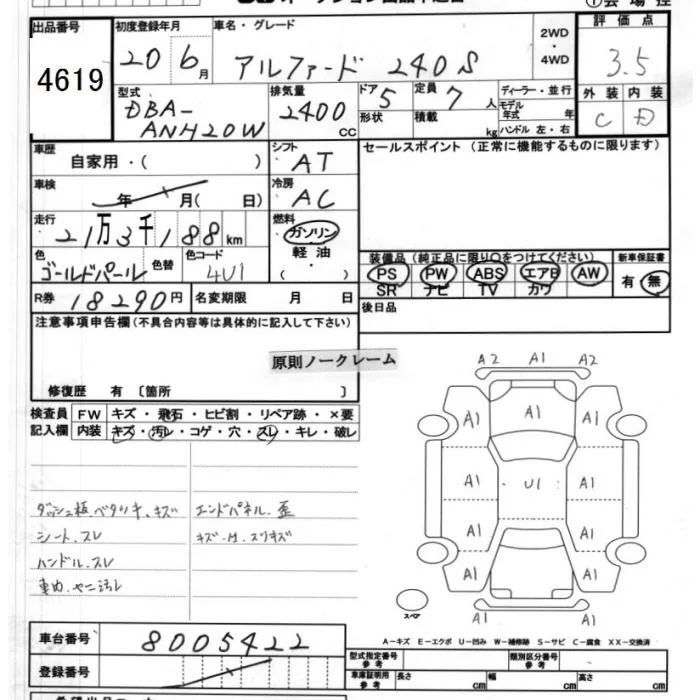 ①会場控
出品番号 初度登録年月 車名・グレード 2WD・4WD 評価点
4619 20 6月 アルファード 240S 3.5
型式 排気量 ドア 定員 ディーラー・並行 外装 内装
DBA-ANH20W 2400CC 5 7人 モデル年式 年 C D
形状 積載 kg ハンドル 左・右
車歴 シフト セールスポイント(正常に機能するものに限ります)
自家用・( ) AT
車検 冷房
年 月( 日) AC
走行 燃料
21万3千188km ガソリン
軽油
・( )
色 色替 色コード 装備品(純正品に限り○をつけてください) 新車保証書
ゴールドパール 4U1 PS PW ABS エアB AW 有・無
SR ナビ TV カワ
R券 18290円 名変期限 月 日 後日品
注意事項申告欄(不具合内容等は具体的に記入して下さい)
原則ノークレーム
修復歴 有〔箇所 〕
検査員 FW キズ・飛石・ヒビ割・リペア跡・×要
記入欄 内装 キズ・汚レ・コゲ・穴・スレ・キレ・破レ
ダッシュ板ベタツキ、キズ エンドパネル歪
シート、スレ
ハンドル、スレ
車内、ヤニ汚レ
A2 A1 A2
A1 A1 A1
A1 U1 A1
A1 A1
A1 A1 A1
スペア
A1
A-キズ E-エクボ U-凹み W-補修跡 S-サビ C-腐食 XX-交換済
車台番号 8005422
型式指定番号 参考 類別区分番号 参考
登録番号 車庫証明用 参考 長さ cm 幅 cm 高さ cm